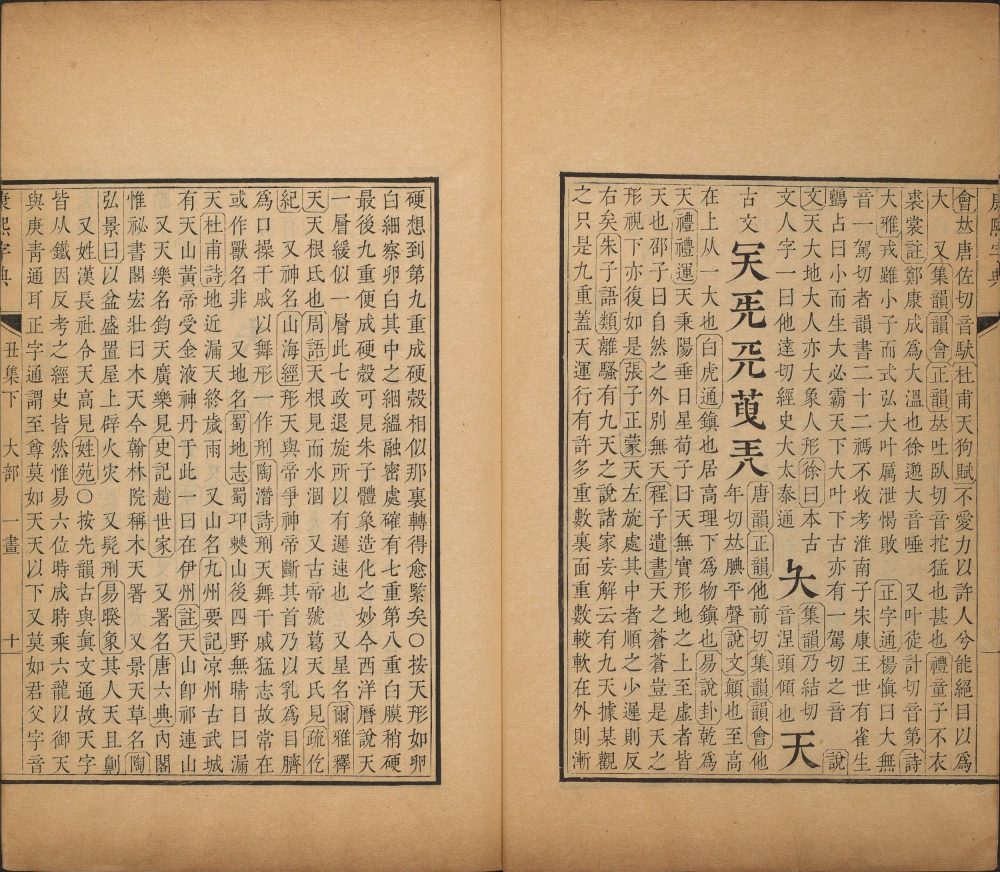 康熙字典
會𠀤唐佐切音馱杜甫天狗賦不愛力以許人兮能絕目以爲
大　又集韻韻會正韻𠀤吐臥切音拕猛也甚也禮童子不衣
裘裳註鄭康成爲大溫也徐邈大音唾　又叶徒計切音第詩
大雅戎雖小子而式弘大叶厲泄愒敗　正字通楊愼曰大無
音一駕切者韻書二十二禡不收考淮南子宋康王世有雀生
鸇占曰小而生大必霸天下大叶下古亦有一駕切之音　說
文天大地大人亦大象人形徐曰本古
文人字一曰他達切經史大太泰通
夨
集韻乃結切
音涅頭傾也
天
古文
唐韻正韻他前切集韻韻會他
年切𠀤腆平聲說文顚也至高
在上从一大也白虎通鎭也居高理下爲物鎭也易說卦乾爲
天禮禮運天秉陽垂日星荀子曰天無實形地之上至虛者皆
天也邵子曰自然之外別無天程子遺書天之蒼蒼豈是天之
形視下亦復如是張子正蒙天左旋處其中者順之少遲則反
右矣朱子語類離騷有九天之說諸家妄解云有九天據某觀
之只是九重蓋天運行有許多重數裏面重數較軟在外則漸
硬想到第九重成硬殼相似那裏轉得愈緊矣○按天形如卵
白細察卵白其中之絪縕融密處確有七重第八重白膜稍硬
最後九重便成硬殼可見朱子體象造化之妙今西洋曆說天
一層緩似一層此七政退旋所以有遲速也　又星名爾雅釋
天天根氐也周語天根見而水涸　又古帝號葛天氏見疏仡
紀　又神名山海經形天與帝爭神帝斷其首乃以乳爲目臍
爲口操干戚以舞形一作刑陶潛詩刑天舞干戚猛志故常在
或作獸名非　又地名蜀地志蜀卭僰山後四野無晴日曰漏
天杜甫詩地近漏天終歲雨　又山名九州要記凉州古武城
有天山黃帝受金液神丹于此一曰在伊州註天山卽祁連山
又天樂名鈞天廣樂見史記趙世家　又署名唐六典內閣
惟祕書閣宏壯曰木天今翰林院稱木天署　又景天草名陶
弘景曰以盆盛置屋上辟火灾　又髡刑易睽象其人天且劓
又姓漢長社令天高見姓苑○按先韻古與眞文通故天字
皆从鐵因反考之經史皆然惟易六位時成時乘六龍以御天
與庚靑通耳正字通謂至尊莫如天天以下又莫如君父字音
康熙字典
丑集下
大部
一畫
十